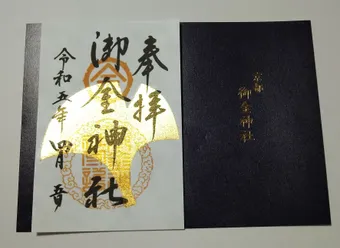 奉拝
御金神社
令和五年四月
京都
御金神社